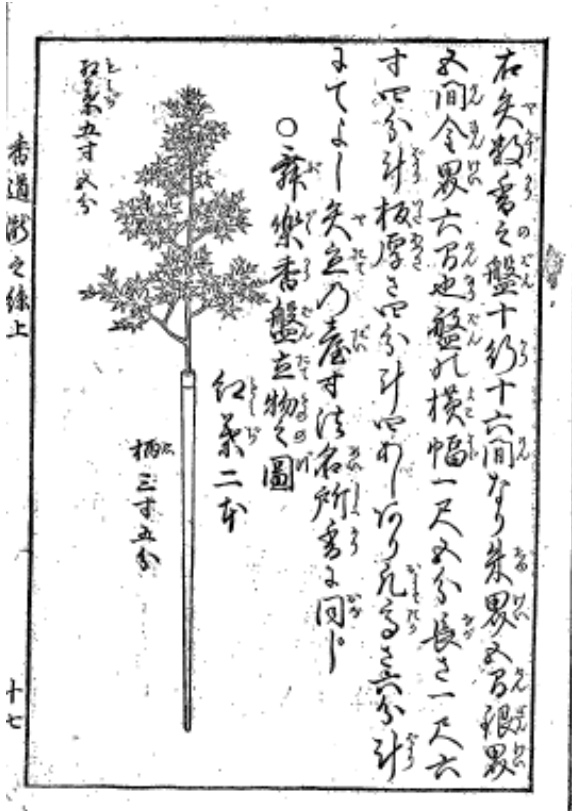 右矢数香之盤十行十六間なり朱界五間銀界
五間金界六間也盤の横幅一尺五分長さ一尺六
寸四分計板厚さ四分計四あしあり凡高さ六分計
にてよし矢立の臺寸法名所香に同じ
○舞楽香盤立物之圖
紅葉二本
紅葉五寸五分
柄三寸五分
香道瀧之絲上
十七